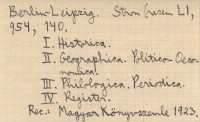 Berlin-Leipzig.
954, 140.
I. Historica.
II. Geographica. Politico-Oeco-
nomica.
III. Philologica. Periodica.
IV. Register.
Rec.: Magyar Könyvszemle 1923.